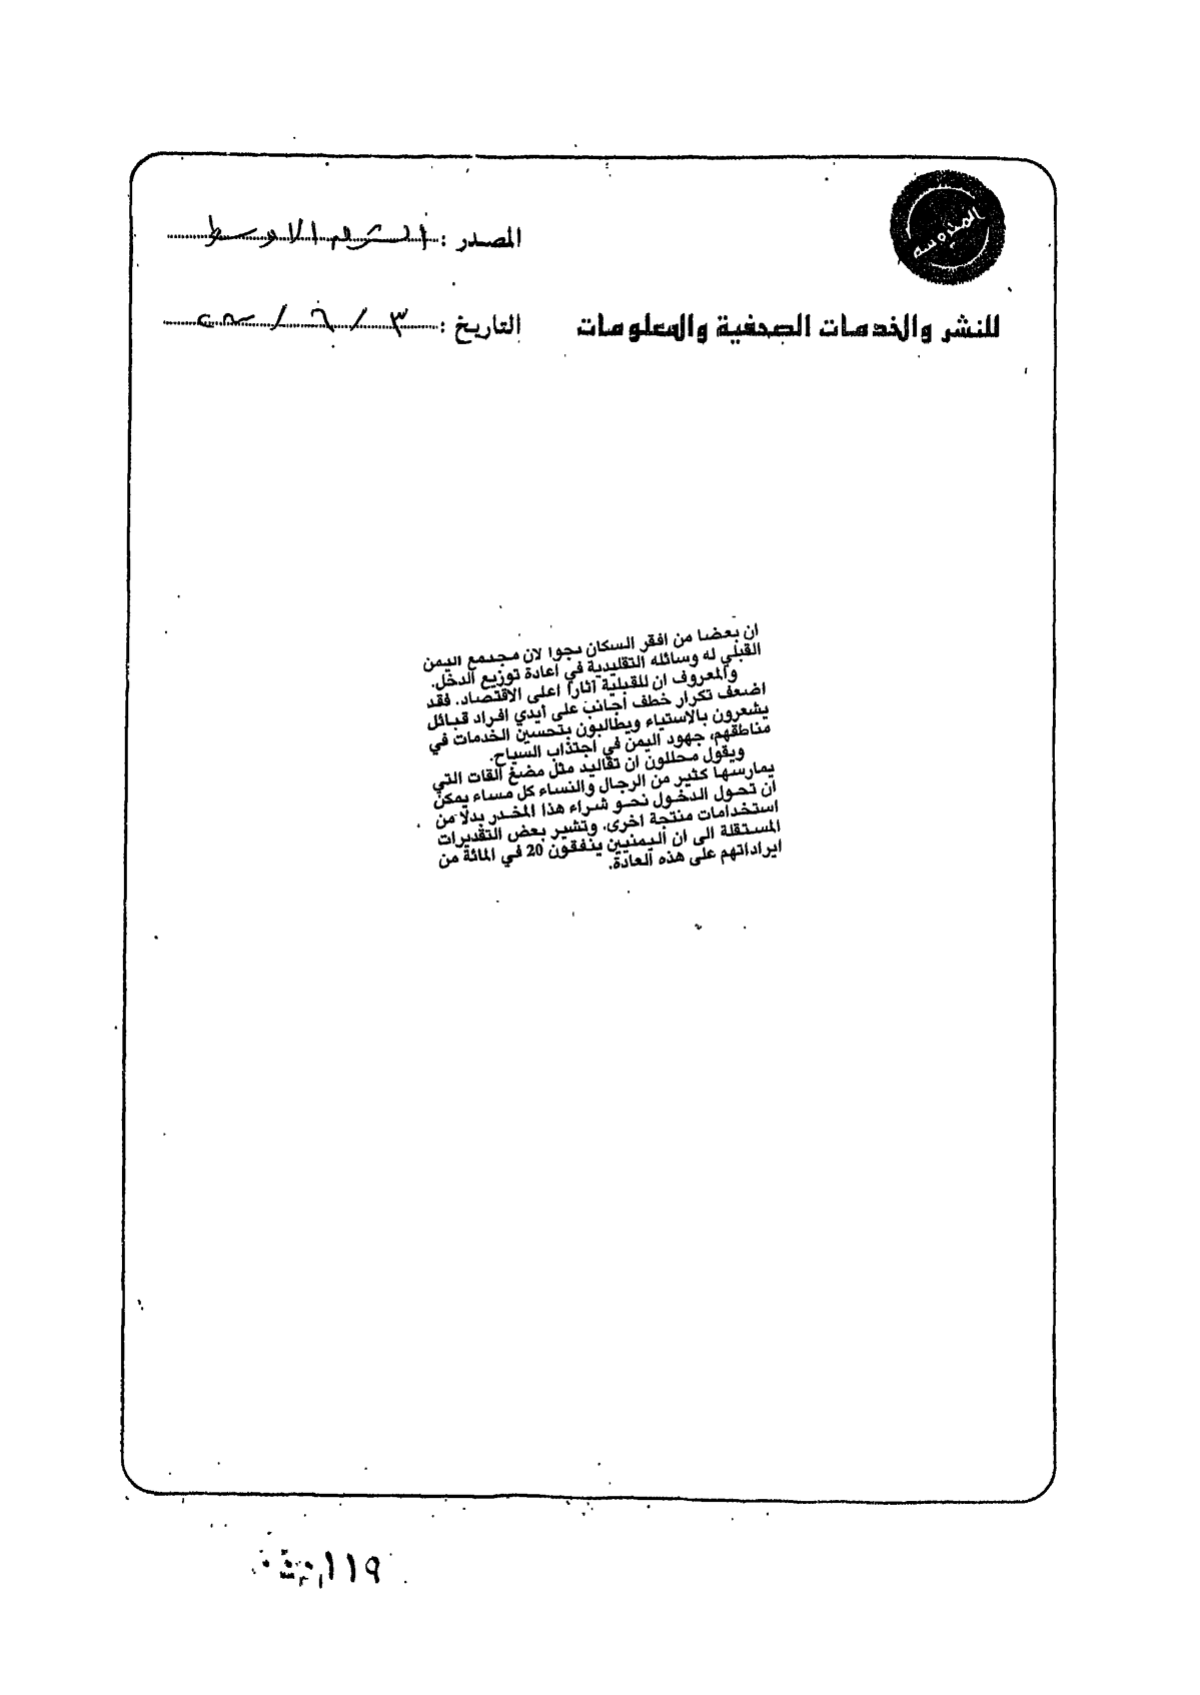 المصدر : الشرق الاوسط
للنشر والخدمات الصحفية والمعلومات
التاريخ : ٣ / ٦ /
ان بعضا من افقر السكان نجوا لان مجتمع اليمن
القبلي له وسائله التقليدية في اعادة توزيع الدخل.
والمعروف ان للقبلية آثارا اعلى الاقتصاد. فقد
اضعف تكرار خطف أجانب على أيدي افراد قبائل
يشعرون بالاستياء ويطالبون بتحسين الخدمات في
مناطقهم، جهود اليمن في اجتذاب السياح.
ويقول محللون ان تقاليد مثل مضغ القات التي
يمارسها كثير من الرجال والنساء كل مساء يمكن
ان تحول الدخول نحو شراء هذا المخدر بدلا من
استخدامات منتجة اخرى. وتشير بعض التقديرات
المستقلة الى ان اليمنيين ينفقون 20 في المائة من
ايراداتهم على هذه العادة.
١١٩